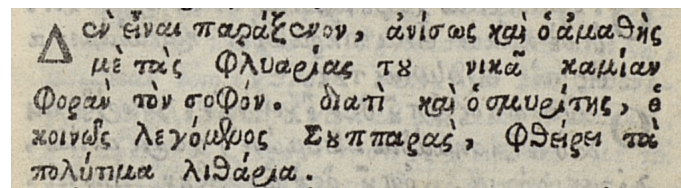 Δὲν εἶναι παράξενον, ἀνίσως καὶ ὁ ἀμαθὴς
μὲ ταῖς Φλυαρίαις του νικᾶ καμίαν
Φορὰν τὸν σοφόν. διατὶ καὶ ὁ σμυρίτης, ὁ
κοινῶς λεγόμενος Σουππαρὰς, Φθείρει τὰ
πολύτιμα λιθάρια.